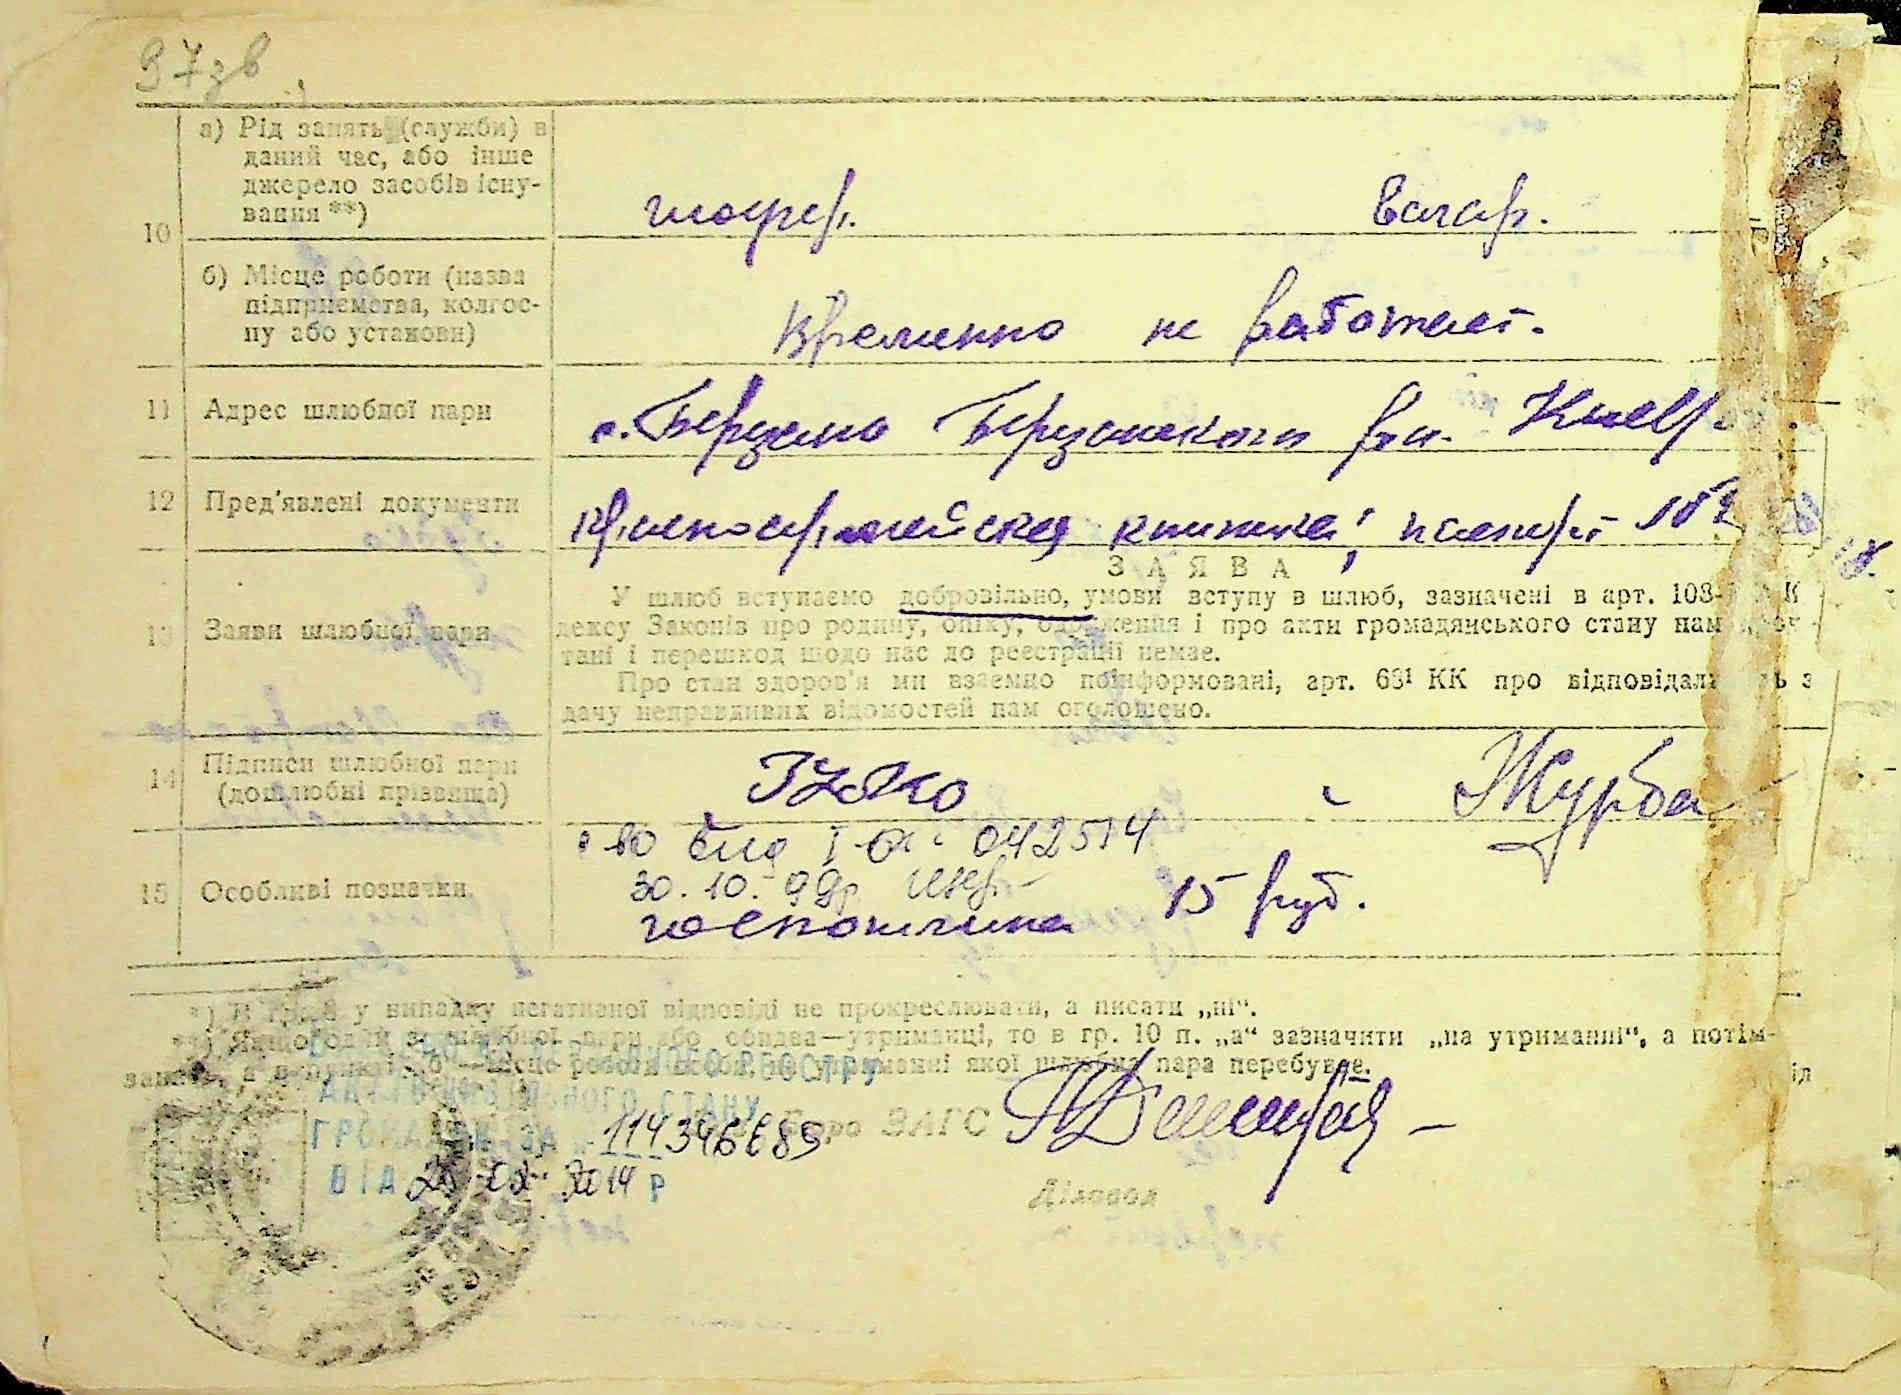 97зв
10
а) Рід занять (служби) в
даний час, або інше
джерело засобів існу-
вання **)
шофер. Бухар.
б) Місце роботи (назва
підприємства, колгос-
пу або установи)
Временно не работает.
11 Адрес шлюбної пари
с. Березань Березанского р-н. Киев
12 Пред'явлені документи
Красноармейская книжка; паспорт
З А Я В А
13 Заяви шлюбної пари
У шлюб вступаємо добровільно, умови вступу в шлюб, зазначені в арт. 108-
дексу Законів про родину, опіку, одруження і про акти громадянського стану нам
тані і перешкод щодо нас до реєстрації немає.
Про стан здоров'я ми взаємно поінформовані, арт. 68¹ КК про відповідаль з
дачу неправдивих відомостей нам оголошено.
14 Підписи шлюбної пари
(дошлюбні прізвища)
Журба
15 Особливі позначки
042514
30.10.99р
госпошлина 15 руб.
*) В графі у випадку негативної відповіді не прокреслювати, а писати „ні“.
**) Якщо один з шлюбної пари або обидва—утриманці, то в гр. 10 п. „а“ зазначити „на утриманні“, а потім
а в пункті „б“—місце роботи особи, на утриманні якої шлюбна пара перебуває.
РЕЄСТРУ
АКТІВ ЦИВІЛЬНОГО СТАНУ
ГРОМАДЯН ЗА
бюро ЗАГС
ВІД 2014 р
Діловод